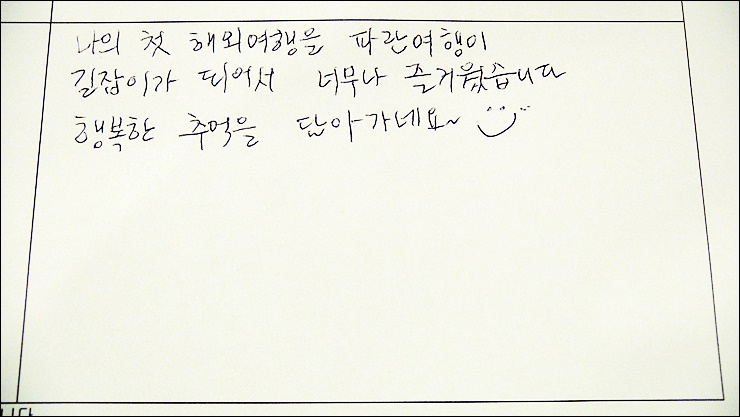 나의 첫 해외여행을 파란여행이
길잡이가 되어서 너무나 즐거웠습니다
행복한 추억을 담아가네요~
니다